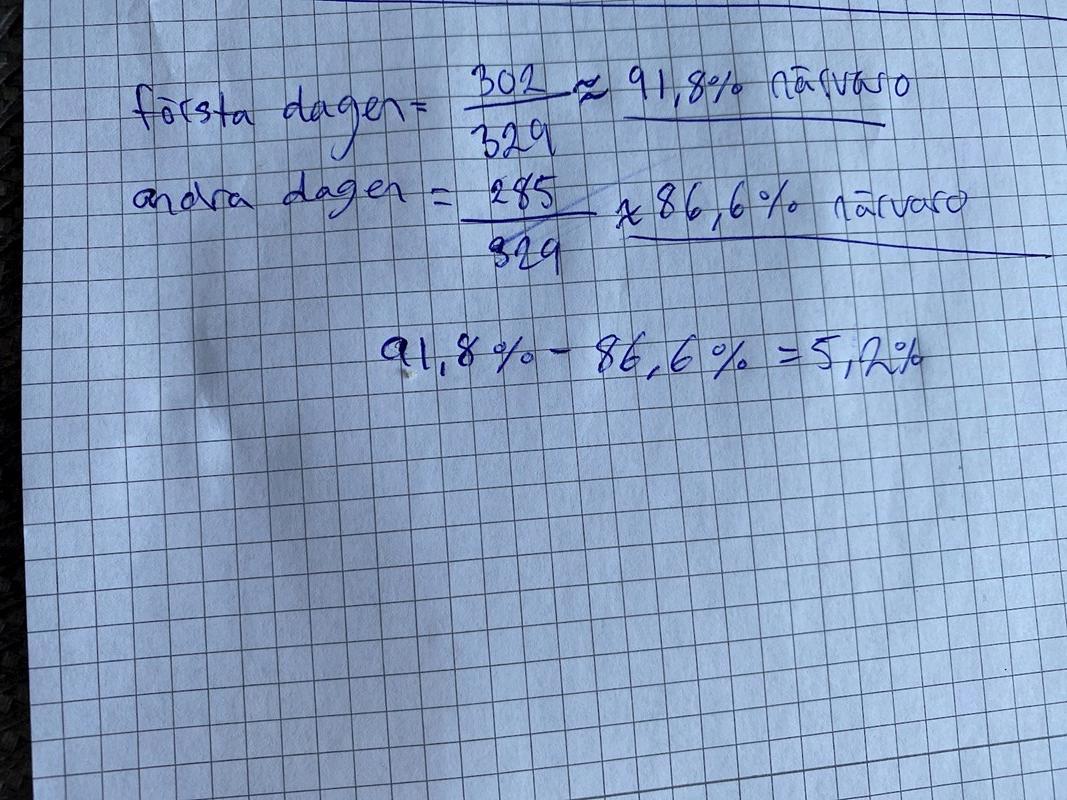 första dagen = 302/329 ≈ 91,8% närvaro
andra dagen = 285/329 ≈ 86,6% närvaro
91,8% - 86,6% = 5,2%